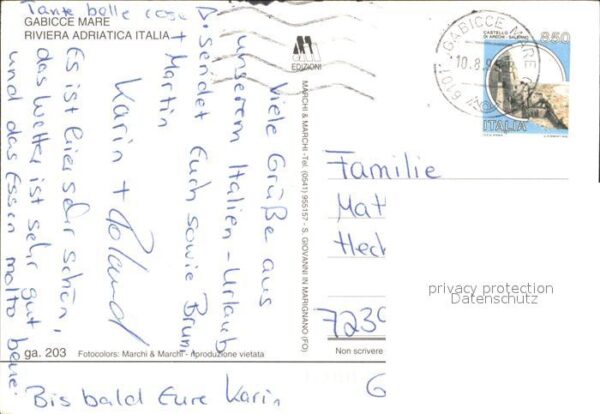 GABICCE MARE
RIVIERA ADRIATICA ITALIA
Tante belle cose
Viele Grüße aus
unserem Italien-Urlaub
sendet Euch sowie Brum
+ Martin
Karin + Roland
Es ist hier sehr schön,
das Wetter ist sehr gut
und das Essen molto bene.
Bis bald Eure Karin
ga. 203
Fotocolors: Marchi & Marchi - riproduzione vietata
EDIZIONI
MARCHI & MARCHI - Tel. (0541) 955157 - S. GIOVANNI IN MARIGNANO (FO)
Non scrivere
GABICCE MARE
10.8.9
CASTELLO
DI ARECHI - SALERNO
850
ITALIA
Familie
Mat
Hech
7230
G
privacy protection
Datenschutz